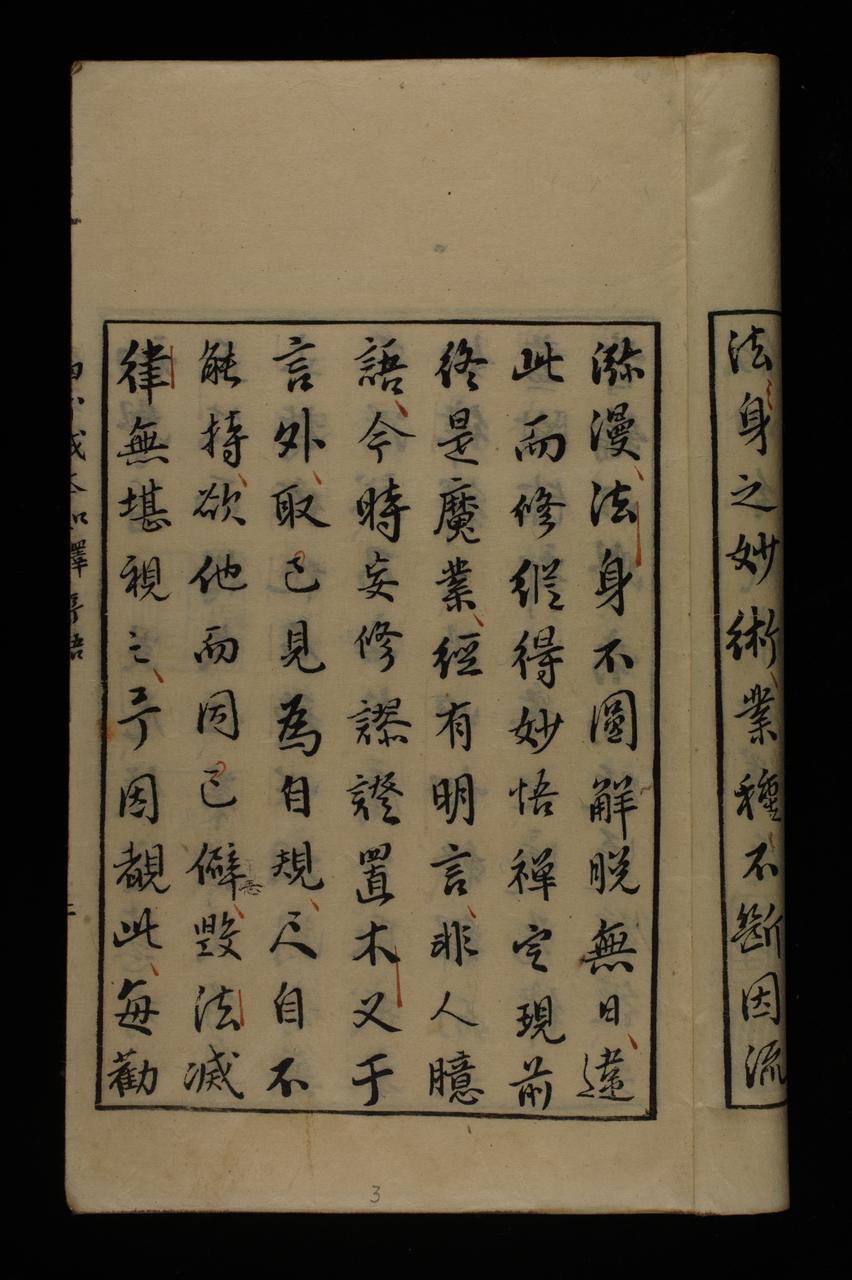 法身之妙術業種不斷因流
瀰漫法身不圓解脫無日違
此而修縱得妙悟禪定現前
終是魔業經有明言非人臆
語今時妄修謬證置木叉于
言外取己見為自規尺自不
能持欲他而同己僻毀法滅
律無堪視之予因覩此每勸
3